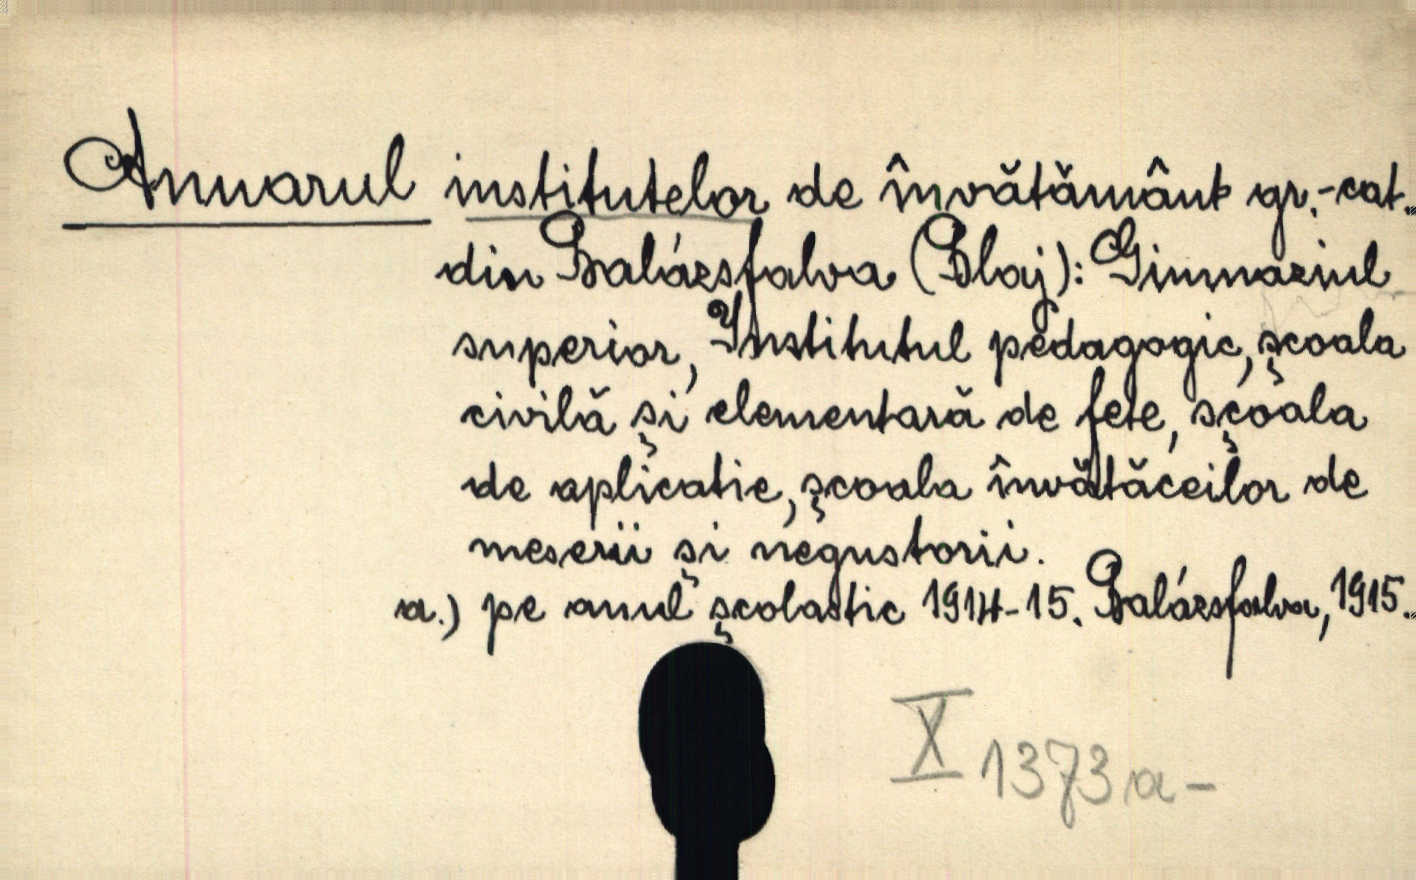 Anuarul institutelor de învătământ gr.-cat.
din Balázsfalva (Blaj): Gimnaziul
superior, Institutul pedagogic, școala
civilă și elementară de fete, școala
de aplicatie, școala învătăceilor de
meserii și negustorii.
a.) pe anul școlastic 1914-15. Balázsfalva, 1915.
X 1373 a-